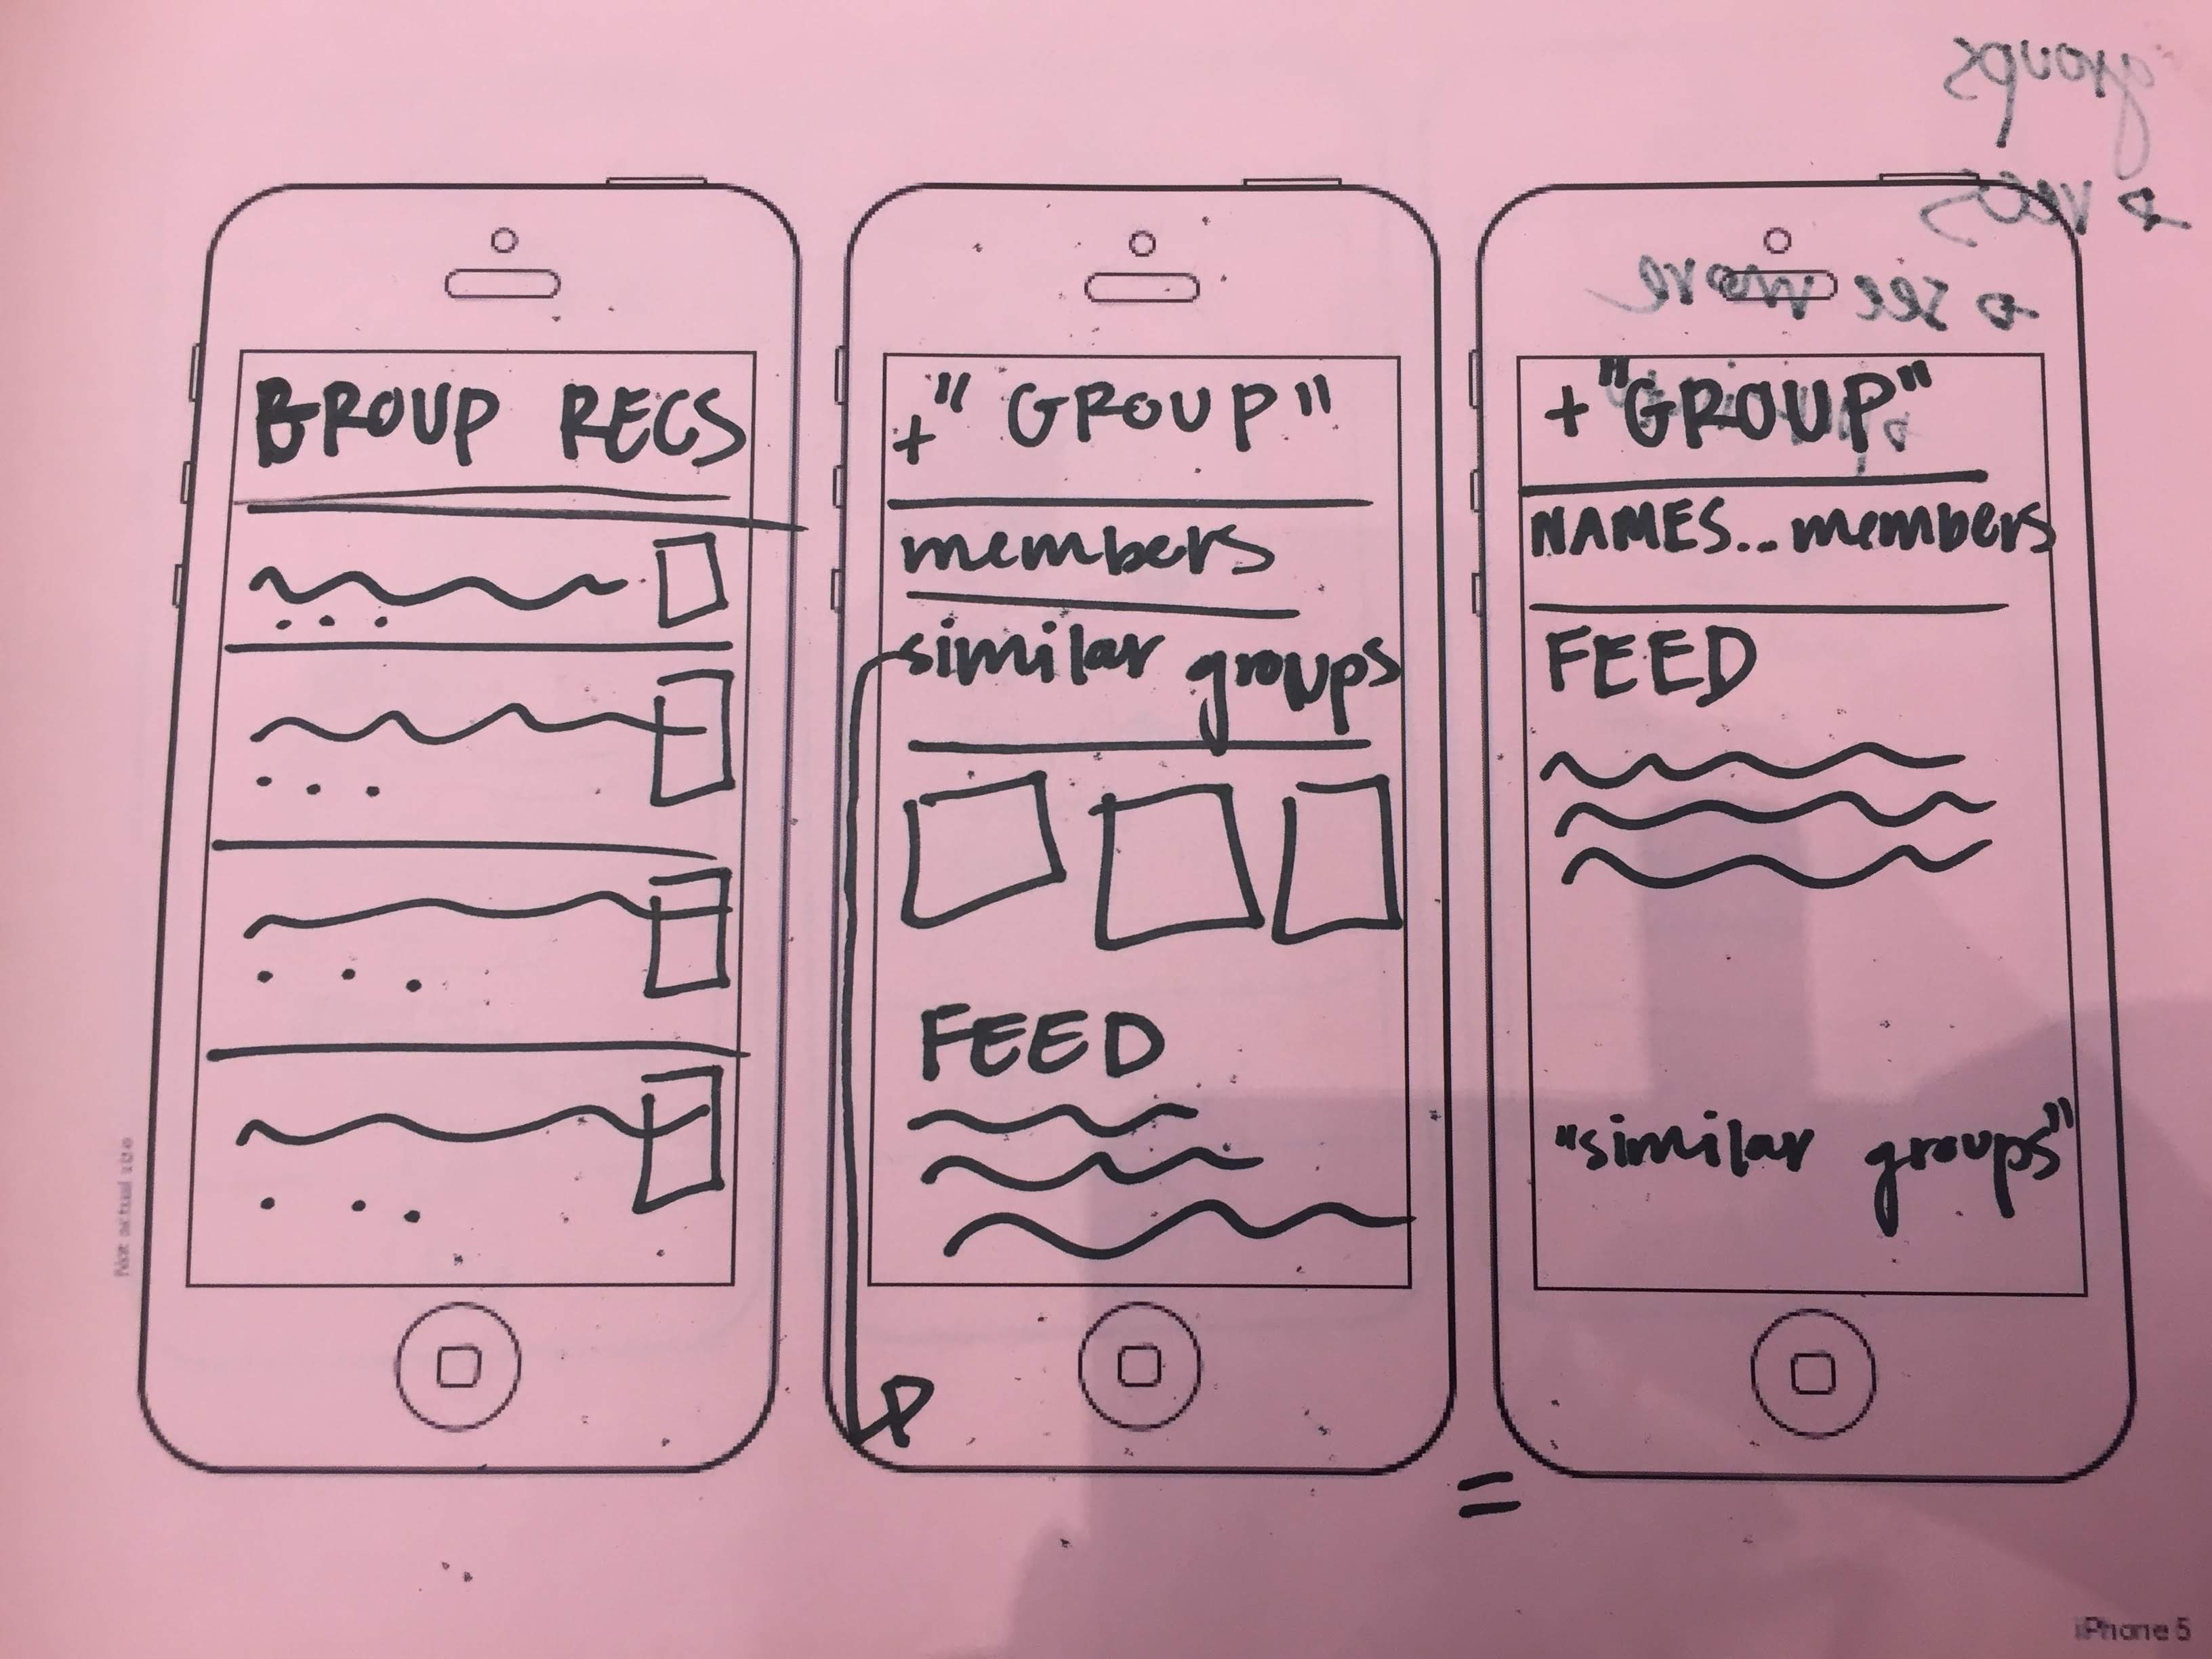 groups
recs
see more
GROUP RECS
+ "GROUP"
members
similar groups
FEED
+ "GROUP"
NAMES... members
FEED
"similar groups"
=
Not actual size
iPhone 5